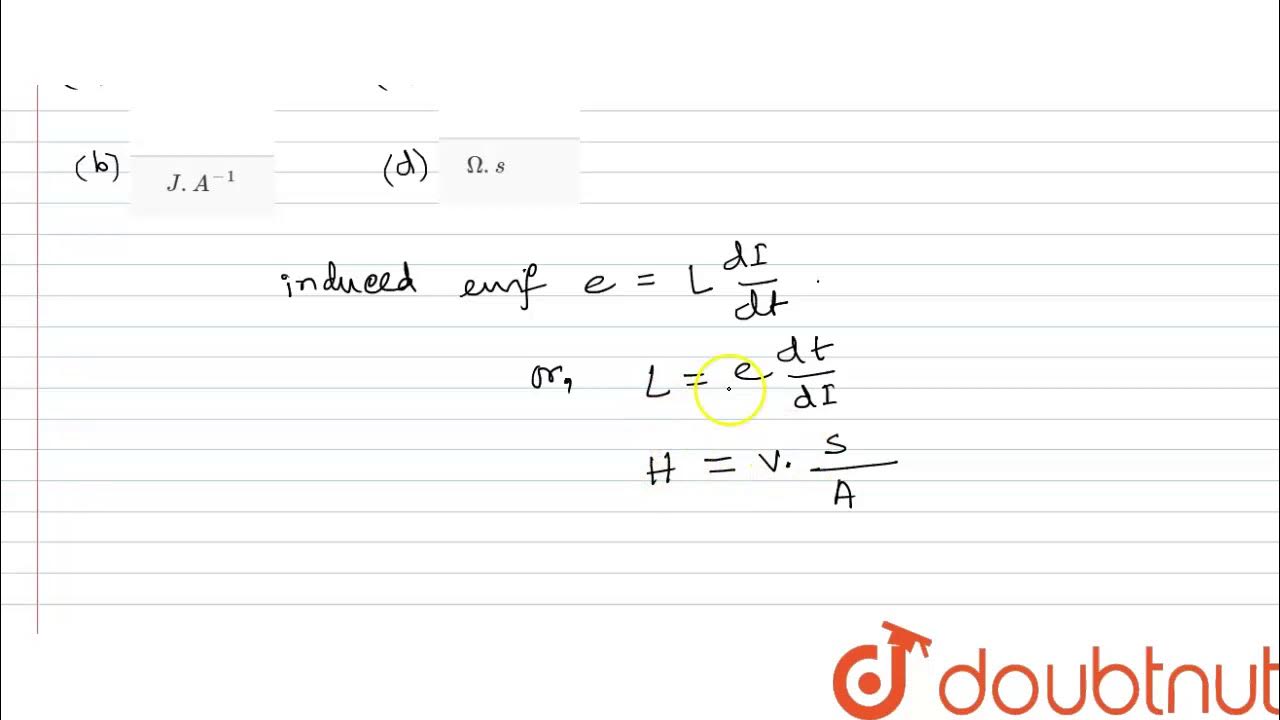 (b) J. A⁻¹ (d) Ω. s
induced emf e = L dI/dt .
or, L = e dt/dI
H = V. S/A
doubtnut